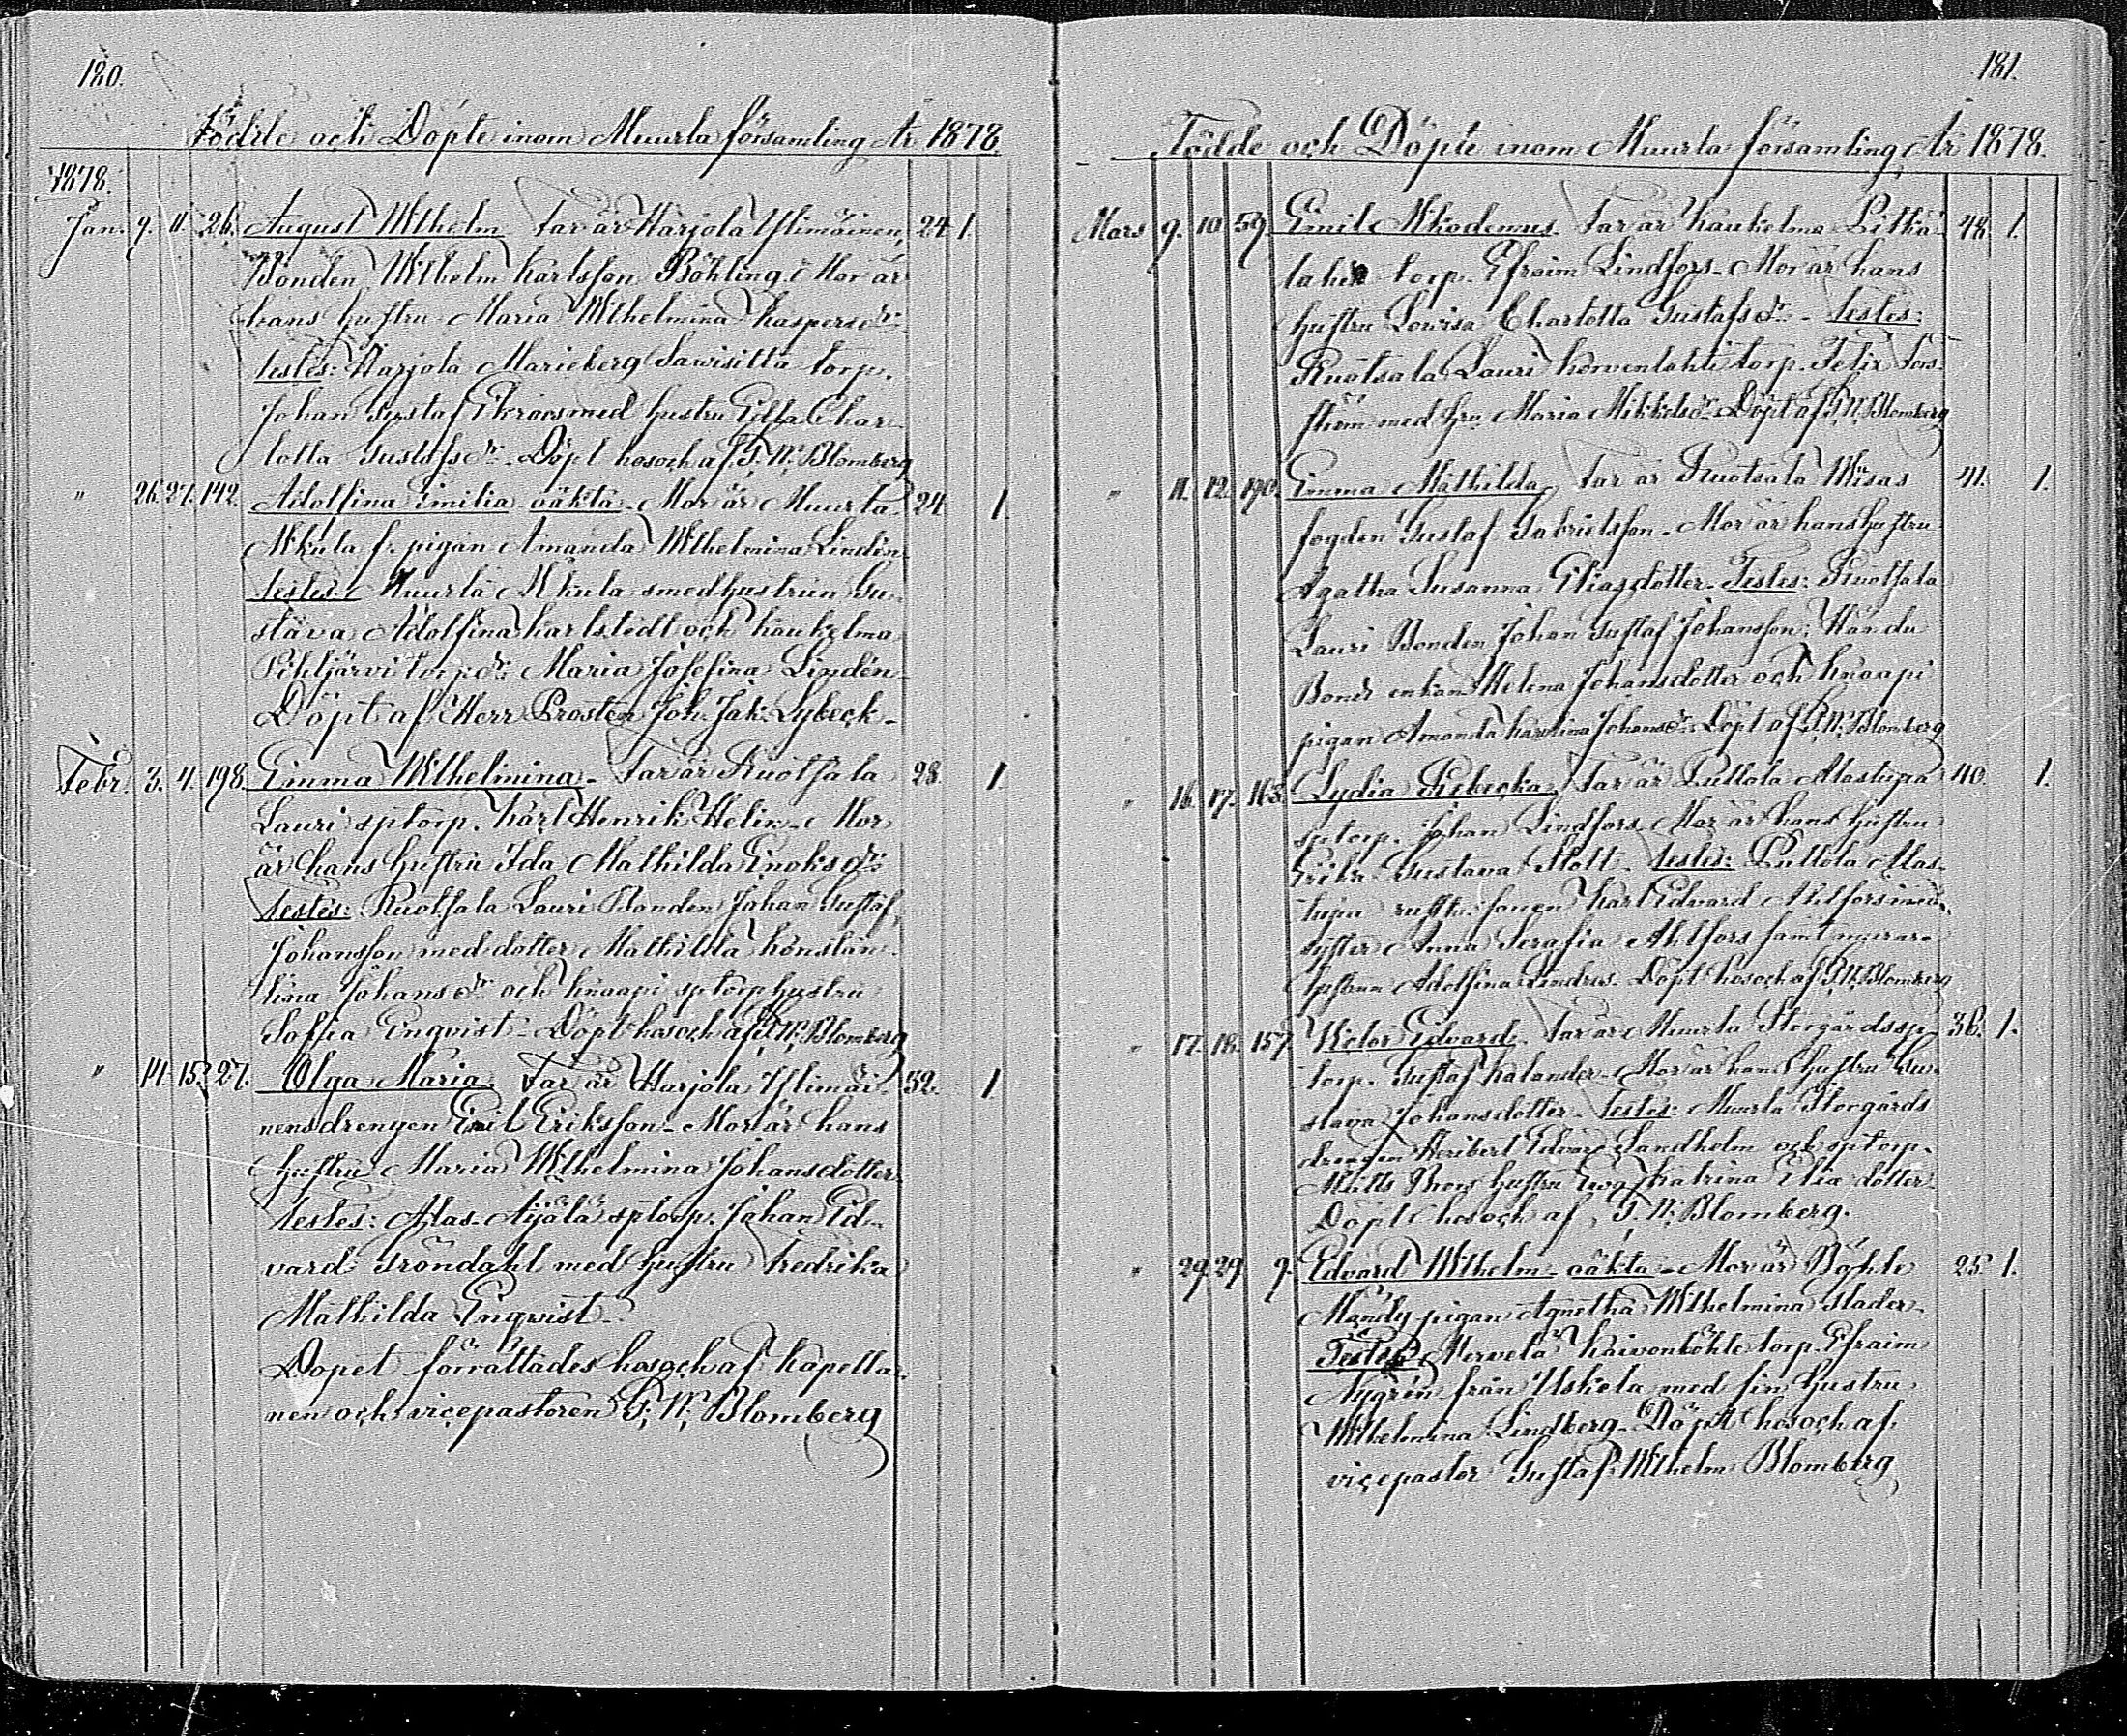 180.
Födde och Döpte inom Muurla församling År 1878
1878.
Jan. 9. 11. 26. August Wilhelm Far är Harjola Ylimäinen, 24. 1.
Bonden Wilhelm Karlsson Böhling. Mor är
hans hustru Maria Wilhelmina Kaspersdr:
testes: Harjola Marieberg Sawisilta torp.
Johan Gustaf Ekroos med hustru Ulla Char-
lotta Gustafsdr. Döpt hos och af G. W. Blomberg
" 26. 27. 142. Adolfina Emilia oäkta - Mor är Muurla 24 1.
Nikula f. pigan Amanda Wilhelmina Lindén
testes: Muurla Nikula smedhustrun Gu-
stava Adolfina Karlstedt och Kaukelma
Pihljärvi torpdr: Maria Josefina Lindén
Döpt af Herr Prosten Joh. Jak. Lybeck -
Febr. 3. 4. 198. Emma Wilhelmina - Far är Ruotsala 28. 1.
Lauri sptorp. Karl Henrik Helin - Mor
är hans hustru Ida Mathilda Enoksdr:
testes: Ruotsala Lauri Bonden Johan Gustaf
Johansson med dotter Mathilda Konstan-
tina Johansdr och Knaapi sptorphustru
Sofia Enqvist - Döpt hos och af G. W. Blomberg
" 14. 15. 27. Olga Maria. Far är Harjola Ylimäi- 52. 1
nens drengen Emil Eriksson - Mor är hans
hustru Maria Wilhelmina Johansdotter
testes: Alas-Äijälä sptorp. Johan Ed-
vard Gröndahl med hustru Fredrika
Mathilda Enqvist -
Dopet förrättades hos och af Kapella-
nen och vicepastoren G. W. Blomberg
181.
Födde och Döpte inom Muurla församling, År 1878.
Mars 9. 10 59. Emil Nikodemus. Far är Kaukelma Pitkä- 48. 1.
lahti torp. Efraim Lindfors - Mor är hans
hustru Lovisa Charlotta Gustafsdr - testes:
Ruotsala Lauri Korvenlahti torp. Felix Fors-
ström med hru Maria Mikkelsdr Döpt af G. W. Blomberg
" 11. 12. 170. Emma Mathilda. Far är Ruotsala Wisas 41. 1.
fogden Gustaf Gabrielsson - Mor är hans hustru
Agatha Susanna Eliasdotter - Testes: Ruotsala
Lauri Bonden Johan Gustaf Johansson; Händu
Bonds enkan Helena Johansdotter och Knaapi
pigan Amanda Karolina Johansdr: Döpt af G. W. Blomberg
" 16. 17. 163. Lydia Rebecka. Far är Pullola Alastupa 40. 1.
sptorp. Johan Lindfors. Mor är hans hustru
Erika Gustava Flott - testes: Pullola Alas-
tupa sonen Karl Edvard Ahlfors med
syster Anna Serafia Ahlfors samt murare
hustrun Adolfina Lindros. Döpt hos och af G. W. Blomberg
" 17. 18. 157 Victor Edvard. Far är Muurla Storgårds sp- 36. 1.
torp. Gustaf Kalander - Mor är hans hustru Gu-
stava Johansdotter - Testes: Muurla Storgårds
drengen Heribert Edvard Sandholm och sptorp.
Matts Broos hustru Eva Katrina Elia dotter.
Döpt hos och af G. W. Blomberg.
" 29. 29. 9. Edvard Wilhelm - oäkta - Mor är Böhle 25. 1.
pigan Agnetha Wilhelmina Stader.
Testes: Mervelä Kaivonböhle torp. Efraim
Nygren från Uskela med sin hustru
Wilhelmina Lindberg - Döpt hos och af
vicepastor Gustaf Wilhelm Blomberg